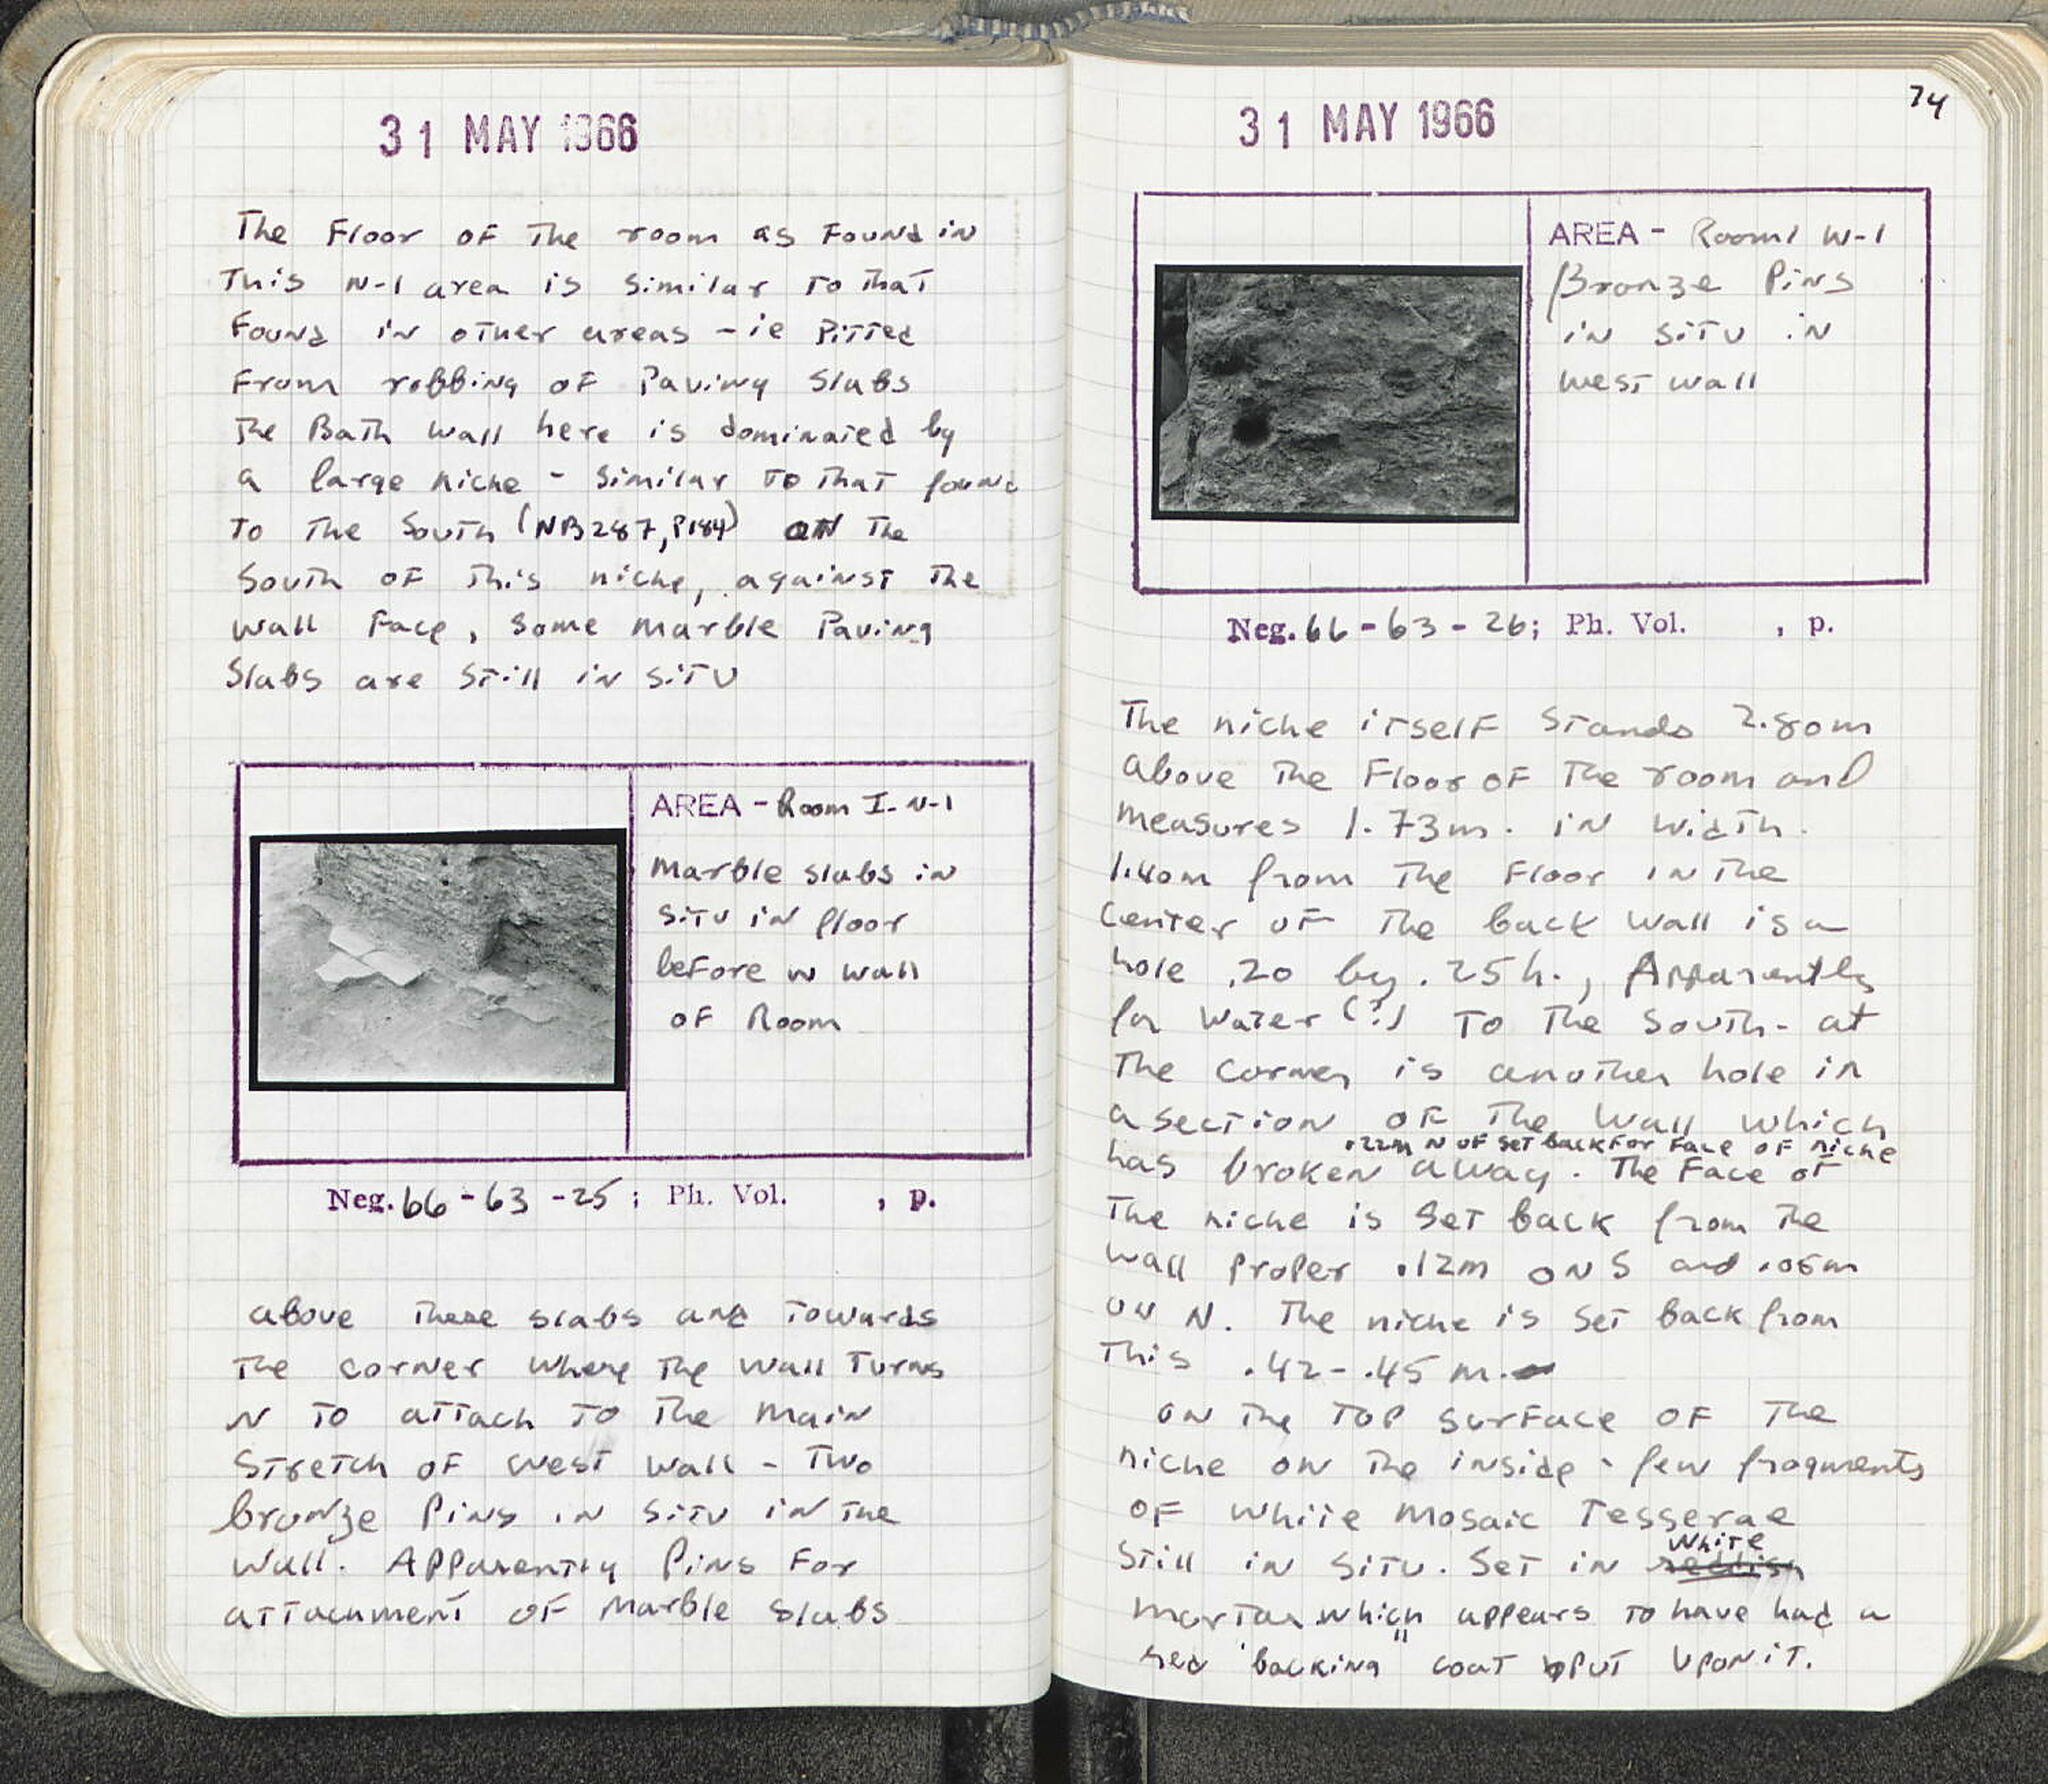 31 MAY 1966
The Floor OF The room as Found in
This N-1 area is similar to that
Found in other areas - ie Pitted
From robbing OF Paving Slabs
The Bath wall here is dominated by
a large niche - similar to that found
To The South (NB287, P184) ON The
South OF This niche, against The
wall Face, some marble Paving
Slabs are still in situ
AREA - Room I- N-1
marble slabs in
situ in floor
before W wall
OF Room
Neg. 66 - 63 - 25 ; Ph. Vol. , p.
above these slabs and towards
The corner where The wall Turns
N To attach To The main
Stretch OF west wall - Two
bronze Pins in situ in The
wall. Apparently Pins For
attachment OF Marble slabs
74
31 MAY 1966
AREA - Room 1 W-1
Bronze Pins
in situ in
west wall
Neg. 66 - 63 - 26; Ph. Vol. , p.
The niche itself stands 2.80m
above The Floor OF The room and
measures 1.73m. in width.
1.40m from The Floor in The
center OF The back wall is a
hole .20 by .25h., Apparently
for water (?) To The South - at
The corner is another hole in
a section OF The wall which
.22m N OF SET back For Face OF niche
has broken away. The Face OF
The niche is set back from The
wall proper .12m ON S and .05m
ON N. The niche is set back from
This .42-.45 m.
ON The TOP surface OF The
niche on The inside - few fragments
OF white mosaic Tesserae
white
still in situ. Set in reddish
mortar which appears to have had a
red "backing" coat put upon it.